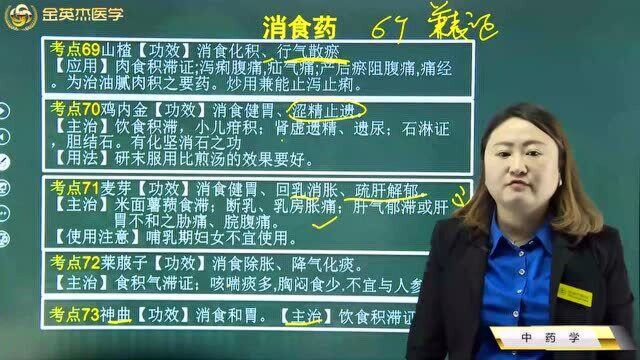 金英杰医学
消食药 69 兼表证
考点69山楂【功效】消食化积、行气散瘀
【应用】肉食积滞证;泻痢腹痛,疝气痛;产后瘀阻腹痛,痛经
。为治油腻肉积之要药。炒用兼能止泻止痢。
考点70鸡内金【功效】消食健胃、涩精止遗。
【主治】饮食积滞，小儿疳积；肾虚遗精、遗尿；石淋证
，胆结石。有化坚消石之功
【用法】研末服用比煎汤的效果要好。
考点71麦芽【功效】消食健胃、回乳消胀、疏肝解郁.
【主治】米面薯蓣食滞；断乳、乳房胀痛；肝气郁滞或肝
胃不和之胁痛、脘腹痛。
【使用注意】哺乳期妇女不宜使用。
考点72莱菔子【功效】消食除胀、降气化痰。
【主治】食积气滞证；咳喘痰多,胸闷食少.不宜与人参
考点73神曲【功效】消食和胃。【主治】饮食积滞证
中药学